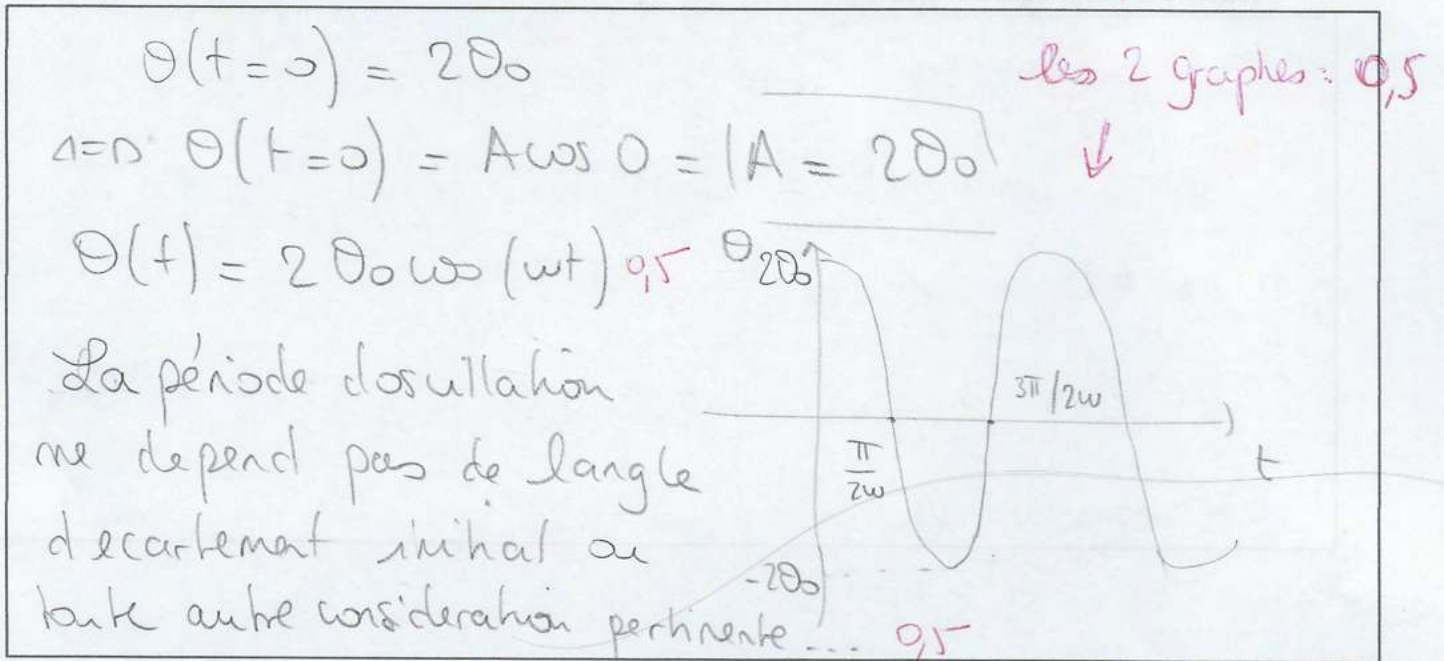 θ(t=0) = 2θ₀
les 2 graphes : 0,5
⇔ θ(t=0) = A cos 0 = |A = 2θ₀|
θ(t) = 2θ₀ cos (ωt) 0,5
θ
2θ₀
La période dosullation
3π/2ω
ne depend pas de langle
π/2ω
t
d ecartement initial ou
-2θ₀
toute autre consideration pertinente ... 0,5